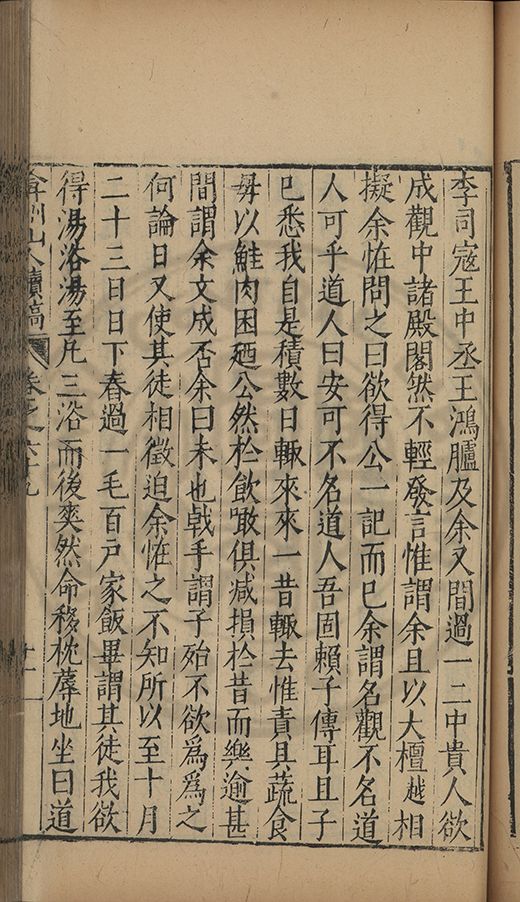 李司寇王中丞王鴻臚及余又間過一二中貴人欲
成觀中諸殿閣然不輕發言惟謂余且以大檀越相
擬余恠問之曰欲得公一記而已余謂名觀不名道
人可乎道人曰安可不名道人吾固賴子傳耳且子
已悉我自是積數日輙來來一昔輙去惟責具蔬食
毋以鮭肉困廼公然於飲噉俱减損於昔而樂逾甚
間謂余文成否余曰未也戟手謂子殆不欲為為之
何論日又使其徒相徵迫余恠之不知所以至十月
二十三日日下舂過一毛百戶家飯畢謂其徒我欲
得湯浴湯至凡三浴而後爽然命移枕蓐地坐曰道
弇州山人續稿 卷之六十九